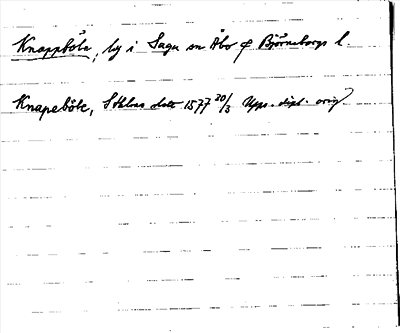 Knappböle, by i Sagu sn Åbo o Björneborgs l.
Knapeböle, Sthlm dat 1577 20/3 Upps. dipl. orig